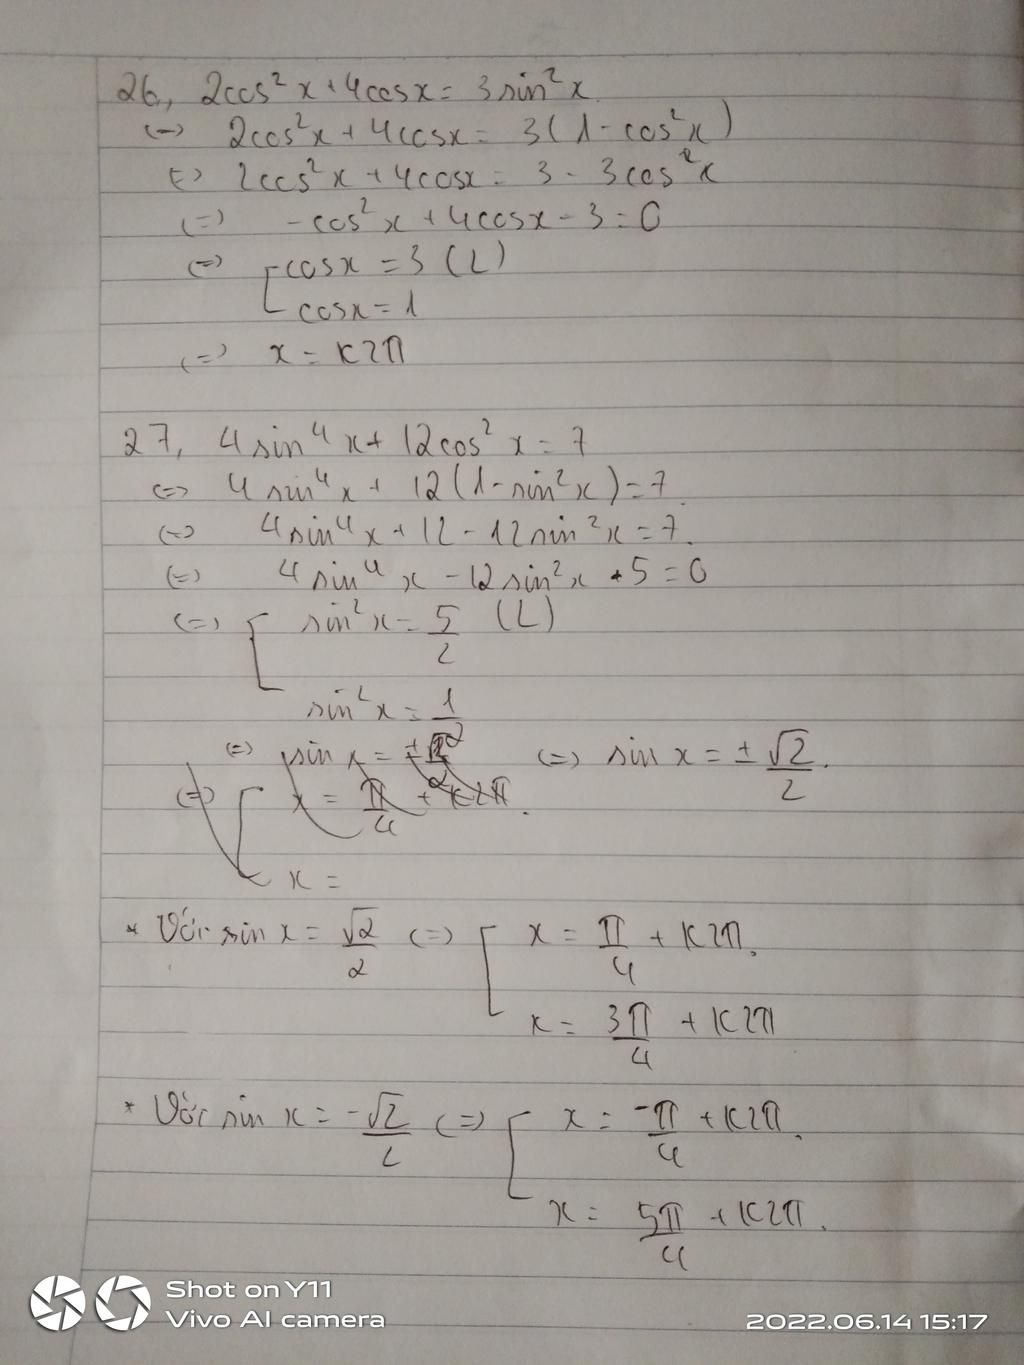 26, 2cos²x + 4cosx = 3sin²x
(=) 2cos²x + 4cosx = 3(1 - cos²x)
(=) 2cos²x + 4cosx = 3 - 3cos²x
(=) -cos²x + 4cosx - 3 = 0
(=) [ cosx = 3 (L)
cosx = 1
(=) x = K2π
27, 4sin⁴x + 12cos²x = 7
(=) 4sin⁴x + 12(1 - sin²x) = 7.
(=) 4sin⁴x + 12 - 12sin²x = 7.
(=) 4sin⁴x - 12sin²x + 5 = 0
(=) [ sin²x = 5/2 (L)
sin²x = 1/2
(=) sin x = ± (=) sin x = ± √2/2.
(=) [ x = π/4 + K2π.
x =
* Với sin x = √2/2 (=) [ x = π/4 + K2π.
x = 3π/4 + K2π
* Với sin x = -√2/2 (=) [ x = -π/4 + K2π.
x = 5π/4 + K2π.
Shot on Y11
Vivo AI camera
2022.06.14 15:17